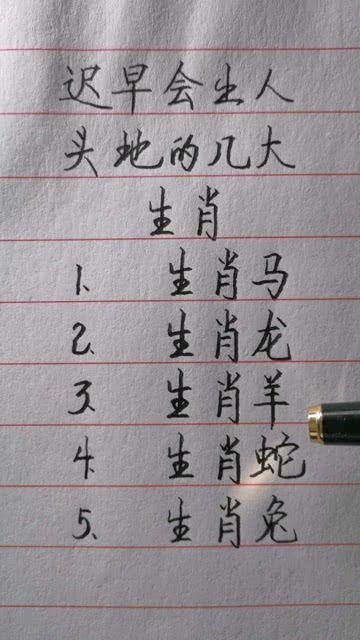 迟早会出人
头地的几大
生肖
1、 生肖马
2、 生肖龙
3、 生肖羊
4、 生肖蛇
5、 生肖兔